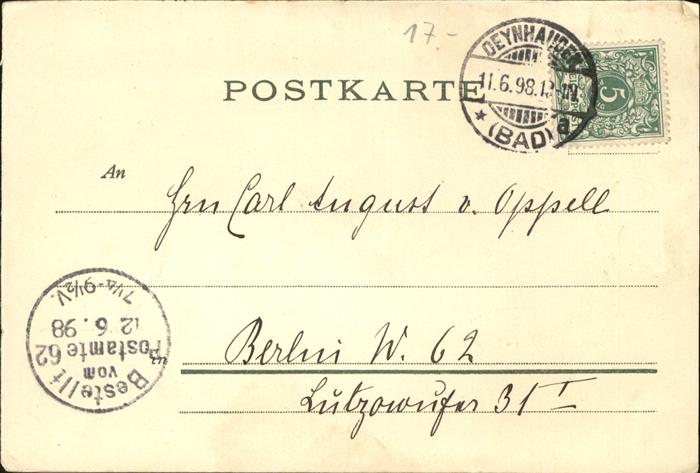 17.-
OEYNHAUSEN
11.6.98.
(BAD) a
5
POSTKARTE
An
Hrn Carl August v. Oppell
in
Berlin W. 62
Lützowufer 31 I
Bestellt
vom
Postamte 62
12 6. 98
7¼-9½V.